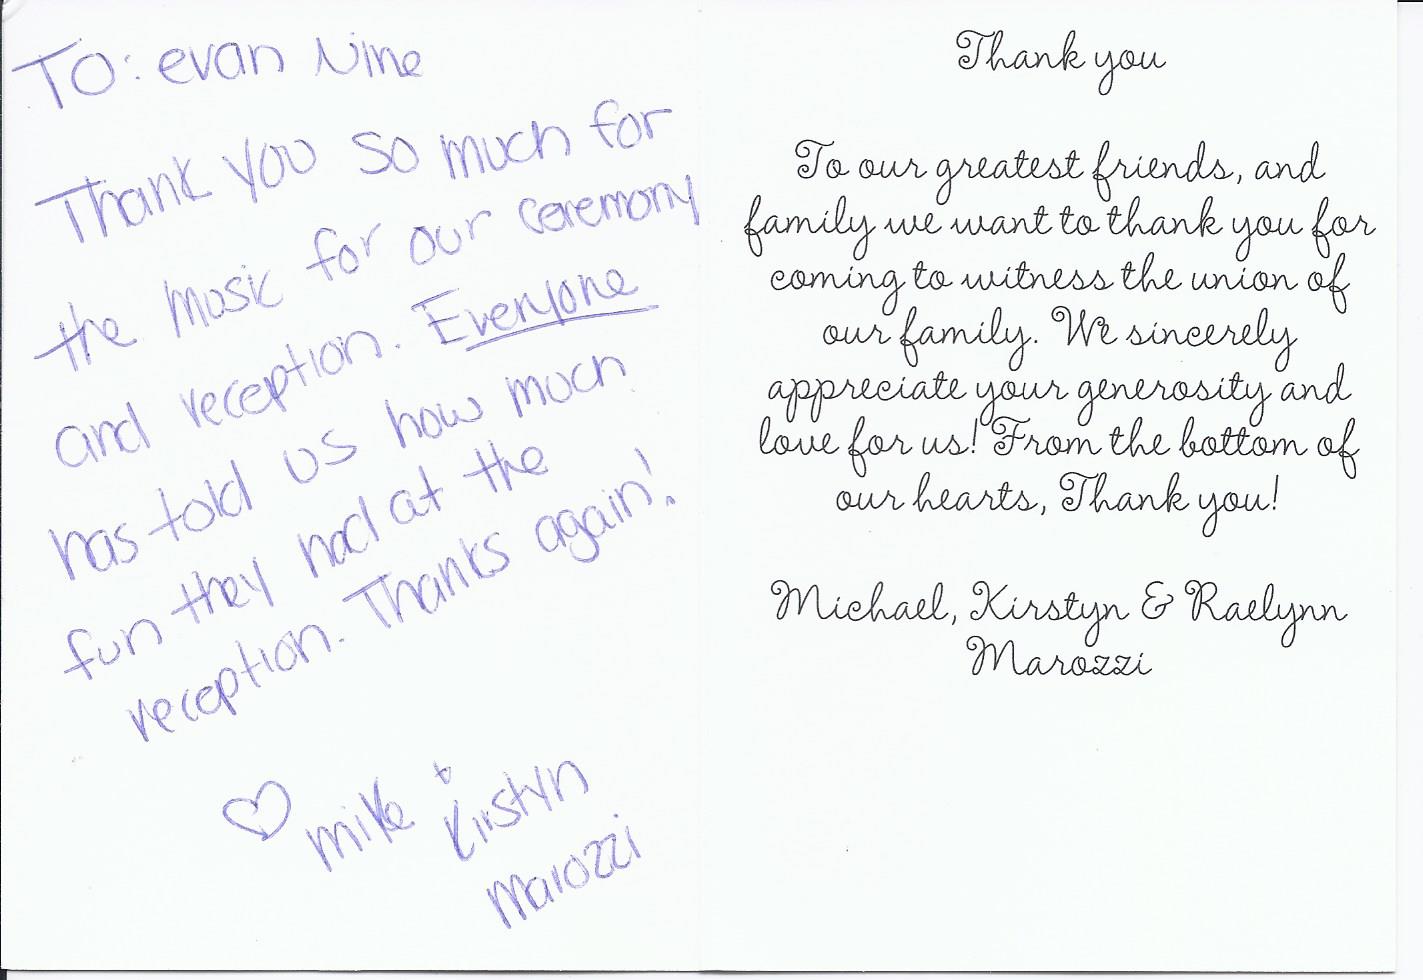 TO: evan Nine
Thank you so much for
the music for our ceremony
and reception. Everyone
has told us how much
fun they had at the
reception. Thanks again!
♡ mike + Kirstyn
Marozzi
Thank you
To our greatest friends, and
family we want to thank you for
coming to witness the union of
our family. We sincerely
appreciate your generosity and
love for us! From the bottom of
our hearts, Thank you!
Michael, Kirstyn & Raelynn
Marozzi